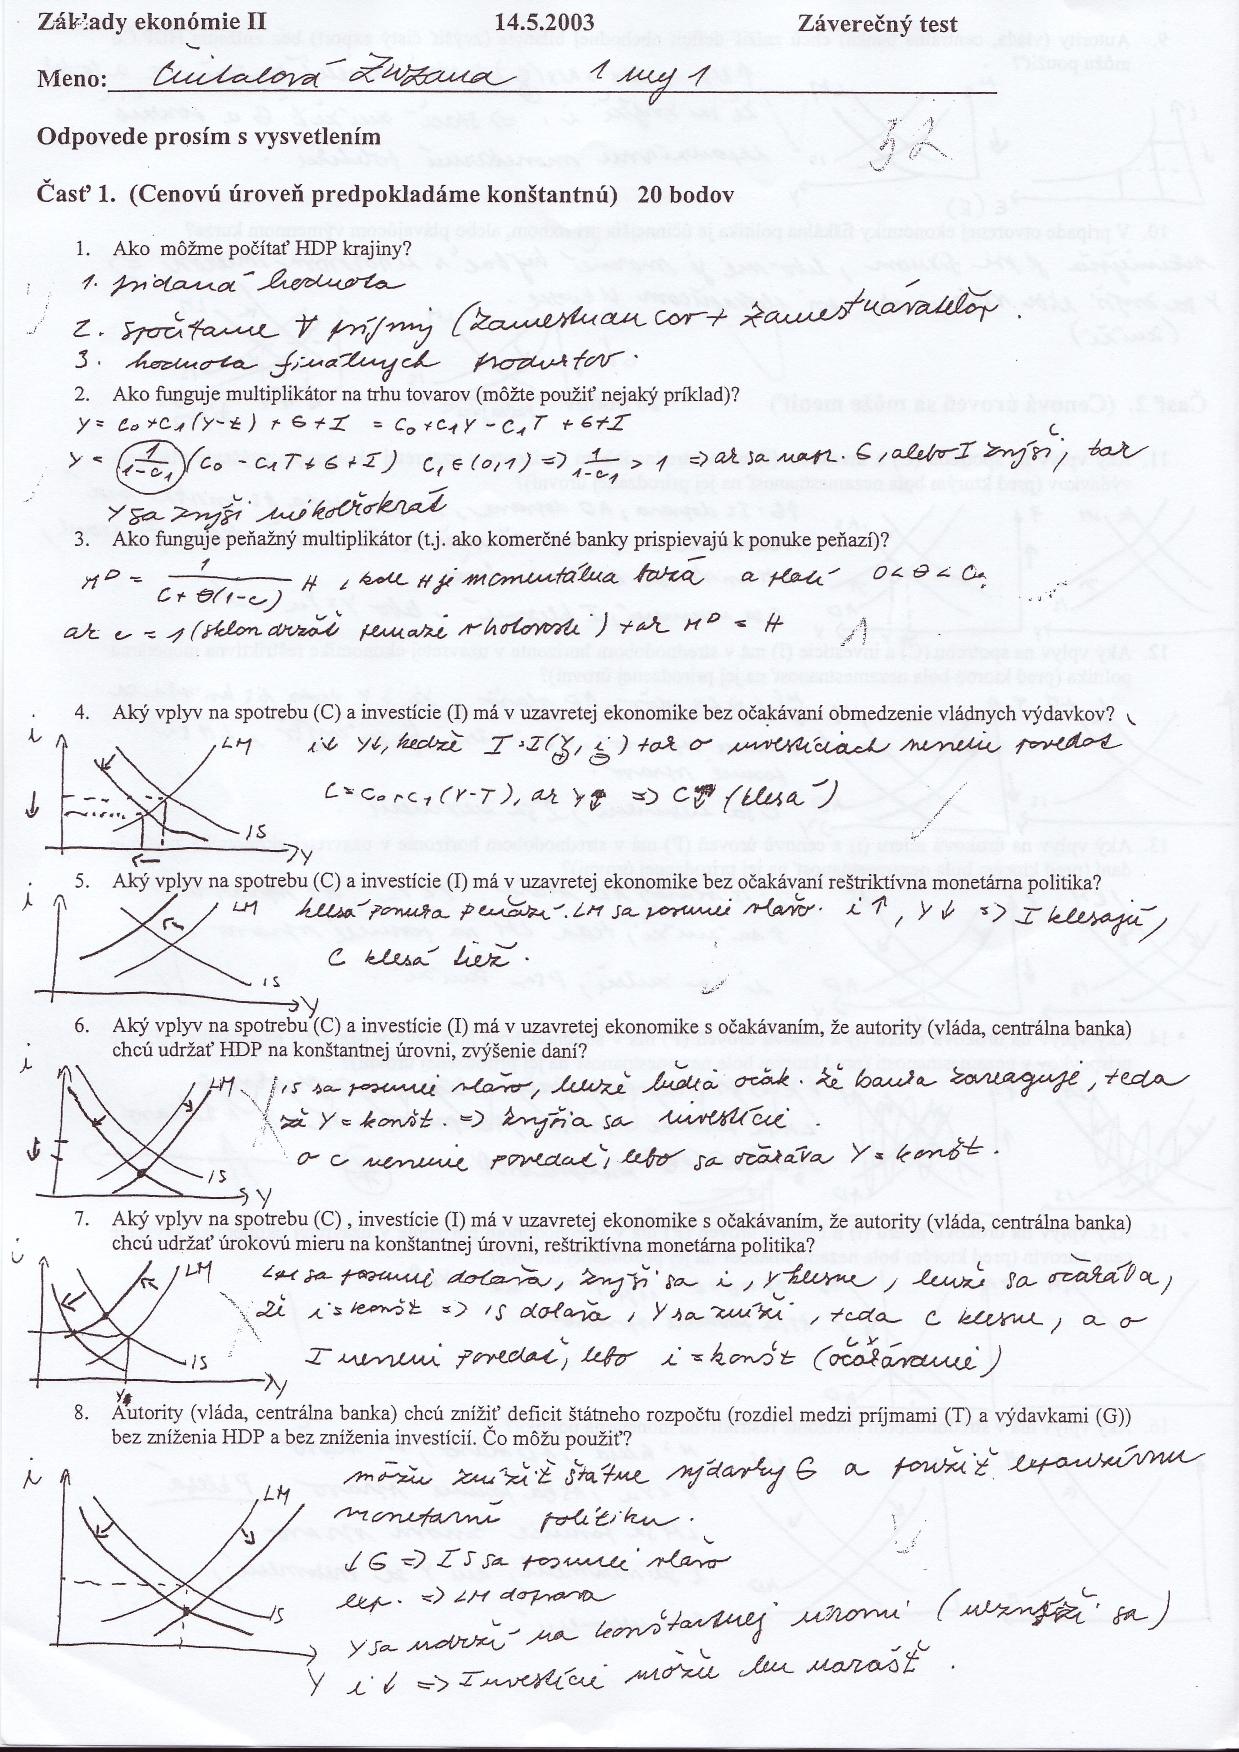 Základy ekonómie II 14.5.2003 Záverečný test
Meno: Čuitalová Zuzana 1 mg 1
52
Odpovede prosím s vysvetlením
Časť 1. (Cenovú úroveň predpokladáme konštantnú) 20 bodov
1. Ako môžme počítať HDP krajiny?
1. pridaná hodnota
2. spočítame ∀ príjmy (zamestnancov + zamestnávateľov.
3. hodnota finálnych produktov.
2. Ako funguje multiplikátor na trhu tovarov (môžte použiť nejaký príklad)?
Y = C0 + C1(Y-t) + G + I = C0 + C1Y - C1T + G + I
Y = 1/(1-C1) (C0 - C1T + G + I) C1 ∈ (0,1) => 1/(1-C1) > 1 => ak sa napr. G, alebo I zvýši, tak
Y sa zvýši niekoľkokrát
3. Ako funguje peňažný multiplikátor (t.j. ako komerčné banky prispievajú k ponuke peňazí)?
M^D = 1/(C + θ(1-c)) H , kde H je momentálna baza a platí 0 < θ < C
ak c = 1 (sklon držať peniaze v hotovosti) tak M^D = H
1
4. Aký vplyv na spotrebu (C) a investície (I) má v uzavretej ekonomike bez očakávaní obmedzenie vládnych výdavkov?
i LM i↓ Y↓, keďže I = I(Y, i) tak o investíciach nevieme povedať
C = C0 + C1(Y-T), ak Y↓ => C↓ (klesá)
IS
Y
5. Aký vplyv na spotrebu (C) a investície (I) má v uzavretej ekonomike bez očakávaní reštriktívna monetárna politika?
i LM klesá ponuka peňazí. LM sa posunie vľavo. i↑, Y↓ => I klesajú,
C klesá tiež.
IS
Y
6. Aký vplyv na spotrebu (C) a investície (I) má v uzavretej ekonomike s očakávaním, že autority (vláda, centrálna banka)
chcú udržať HDP na konštantnej úrovni, zvýšenie daní?
i LM IS sa posunie vľavo, lenže ľudia očak. že banka zareaguje, teda
že Y = konšt. => zvýšia sa investície.
o C nevieme povedať, lebo sa očakáva Y = konšt.
IS
Y
7. Aký vplyv na spotrebu (C) , investície (I) má v uzavretej ekonomike s očakávaním, že autority (vláda, centrálna banka)
chcú udržať úrokovú mieru na konštantnej úrovni, reštriktívna monetárna politika?
i LM LM sa posunie doľava, zvýši sa i, Y klesne, lenže sa očakáva,
že i = konšt => IS doľava, Y sa zníži, teda C klesne, a o
I nevieme povedať, lebo i = konšt (očakávanie)
IS
Y
8. Autority (vláda, centrálna banka) chcú znížiť deficit štátneho rozpočtu (rozdiel medzi príjmami (T) a výdavkami (G))
bez zníženia HDP a bez zníženia investícií. Čo môžu použiť?
i LM môžu znížiť štátne výdavky G a použiť expanzívnu
monetarnu politiku.
↓G => IS sa posunie vľavo
exp. => LM doprava
IS
Y sa udrží na konštantnej úrovni (nezníži sa)
Y i↓ => Investície môžu len narásť.